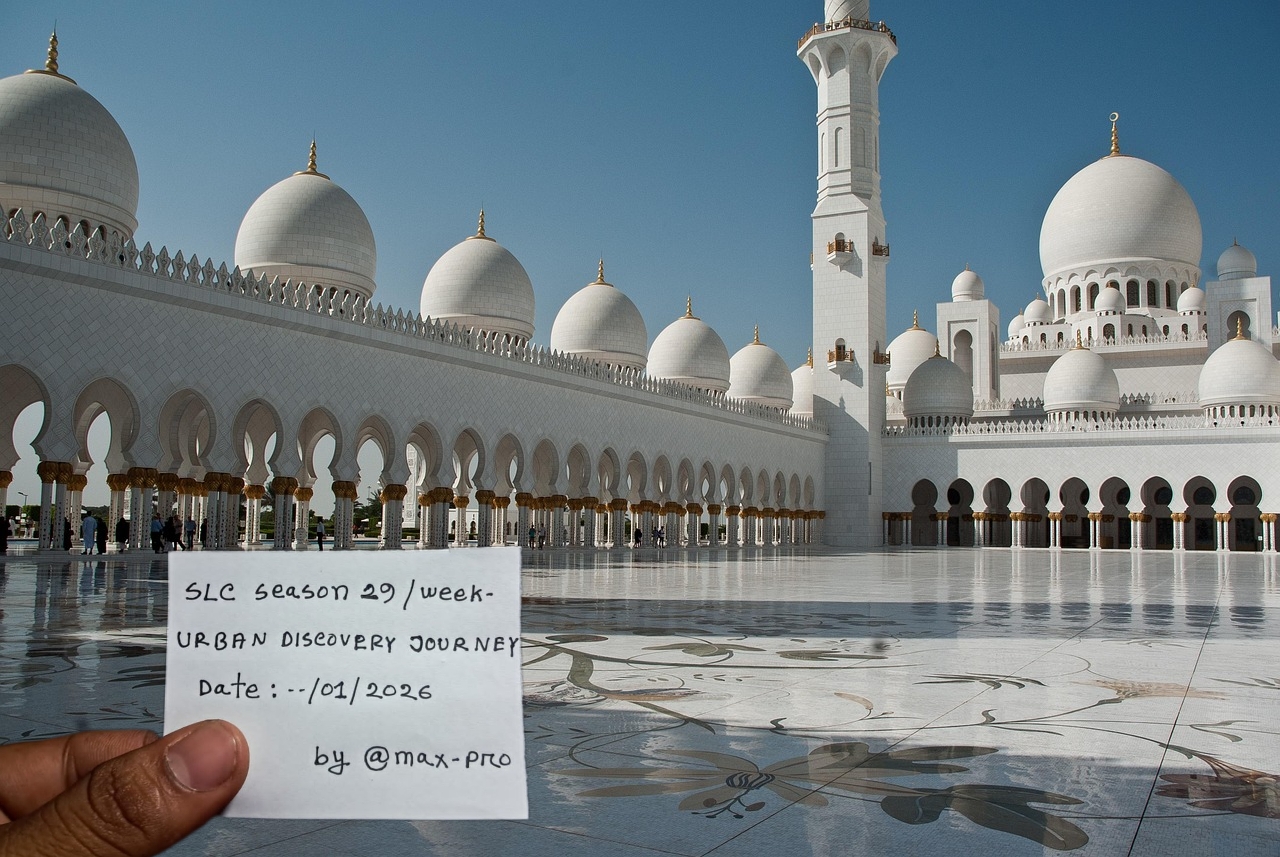 SLC season 29/week-
URBAN DISCOVERY JOURNEY
Date: --/01/2026
by @max-pro